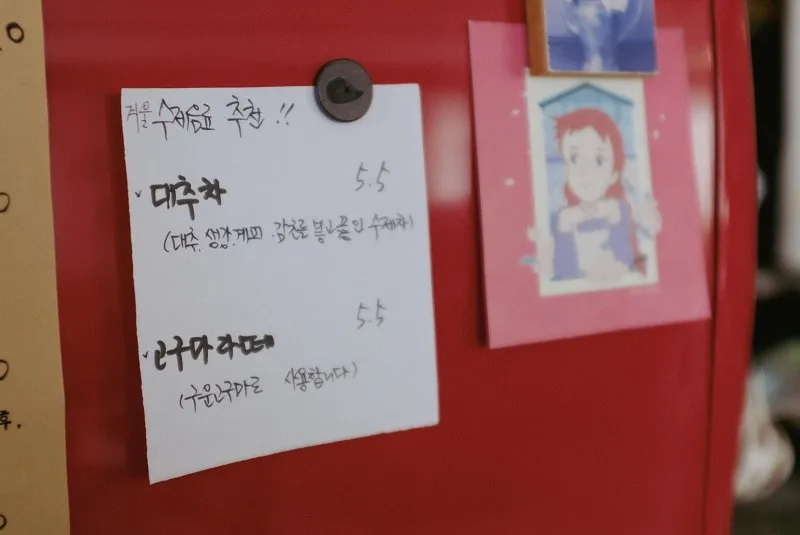 겨울 수제음료 추천!!
대추차 5.5
(대추.생강.계피.감초를 넣고 끓인 수제차)
고구마라떼 5.5
(구운고구마로 사용합니다)